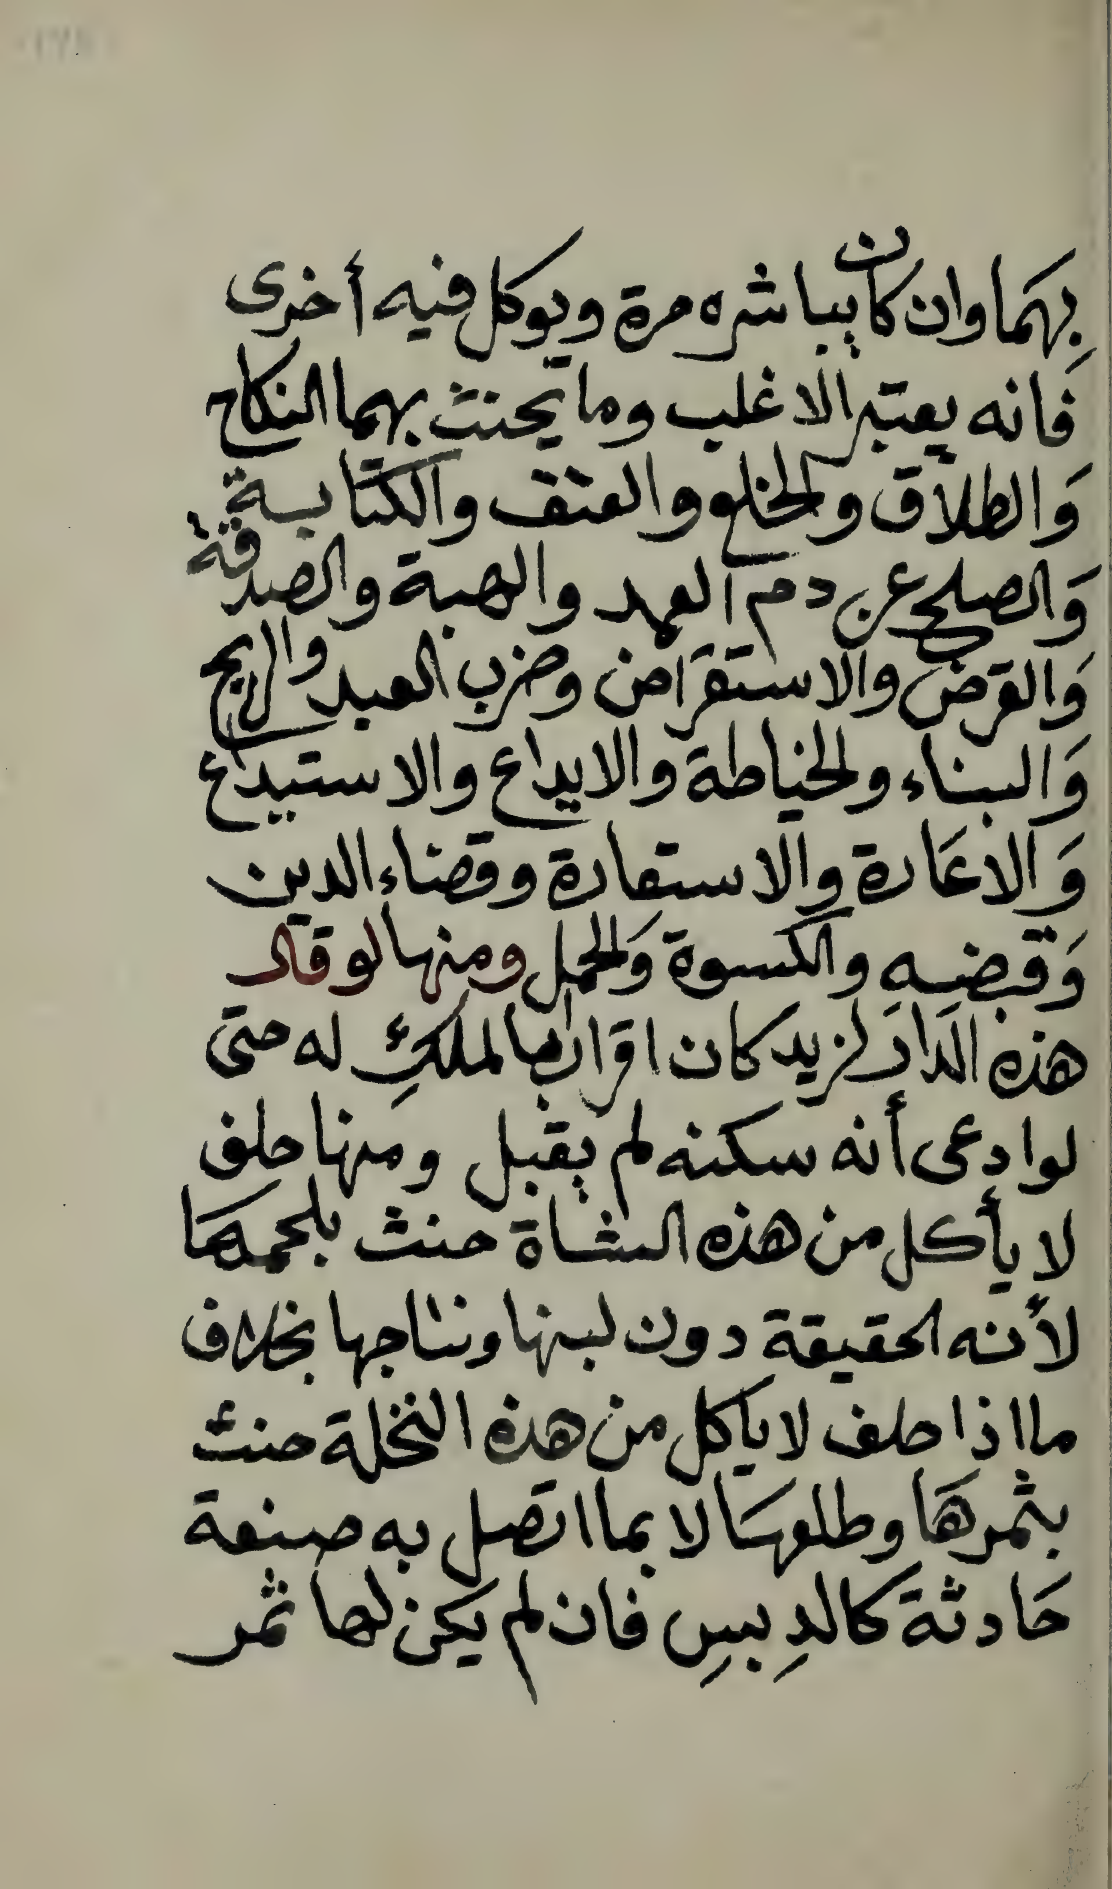 بِهمَا وان كان يباشره مرة ويوكل فيه أخرى
فَانه يعتبر الاغلب وما يحنث بهما النكاح
وَالطلاق والخلع والعتق والكتابة
وَالصلح عن دم العمد والهبة والصدقة
وَالقرض والاستقراض وضرب العبد والذبح
وَالبناء والخياطة والايداع والاستيداع
وَالاعَارة والاستعارة وقضاء الدين
وَقبضه والكسوة وَالحمل ومنها لو قال
هذه الدار لزيد كان اقرارا بالملكِ له حتى
لوادعى أنه سكنه لم يقبل ومنها حلف
لا يأكل من هذه الشاة حنث بلحمهَا
لأنه الحقيقة دون لبنها ونتاجها بخلاف
ما اذا حلف لا ياكل من هذه النخلة حنث
بثمرهَا وطلعهَا لا بما اتصل به صنعة
حَادثة كالدِبسِ فان لم يكن لها ثمر